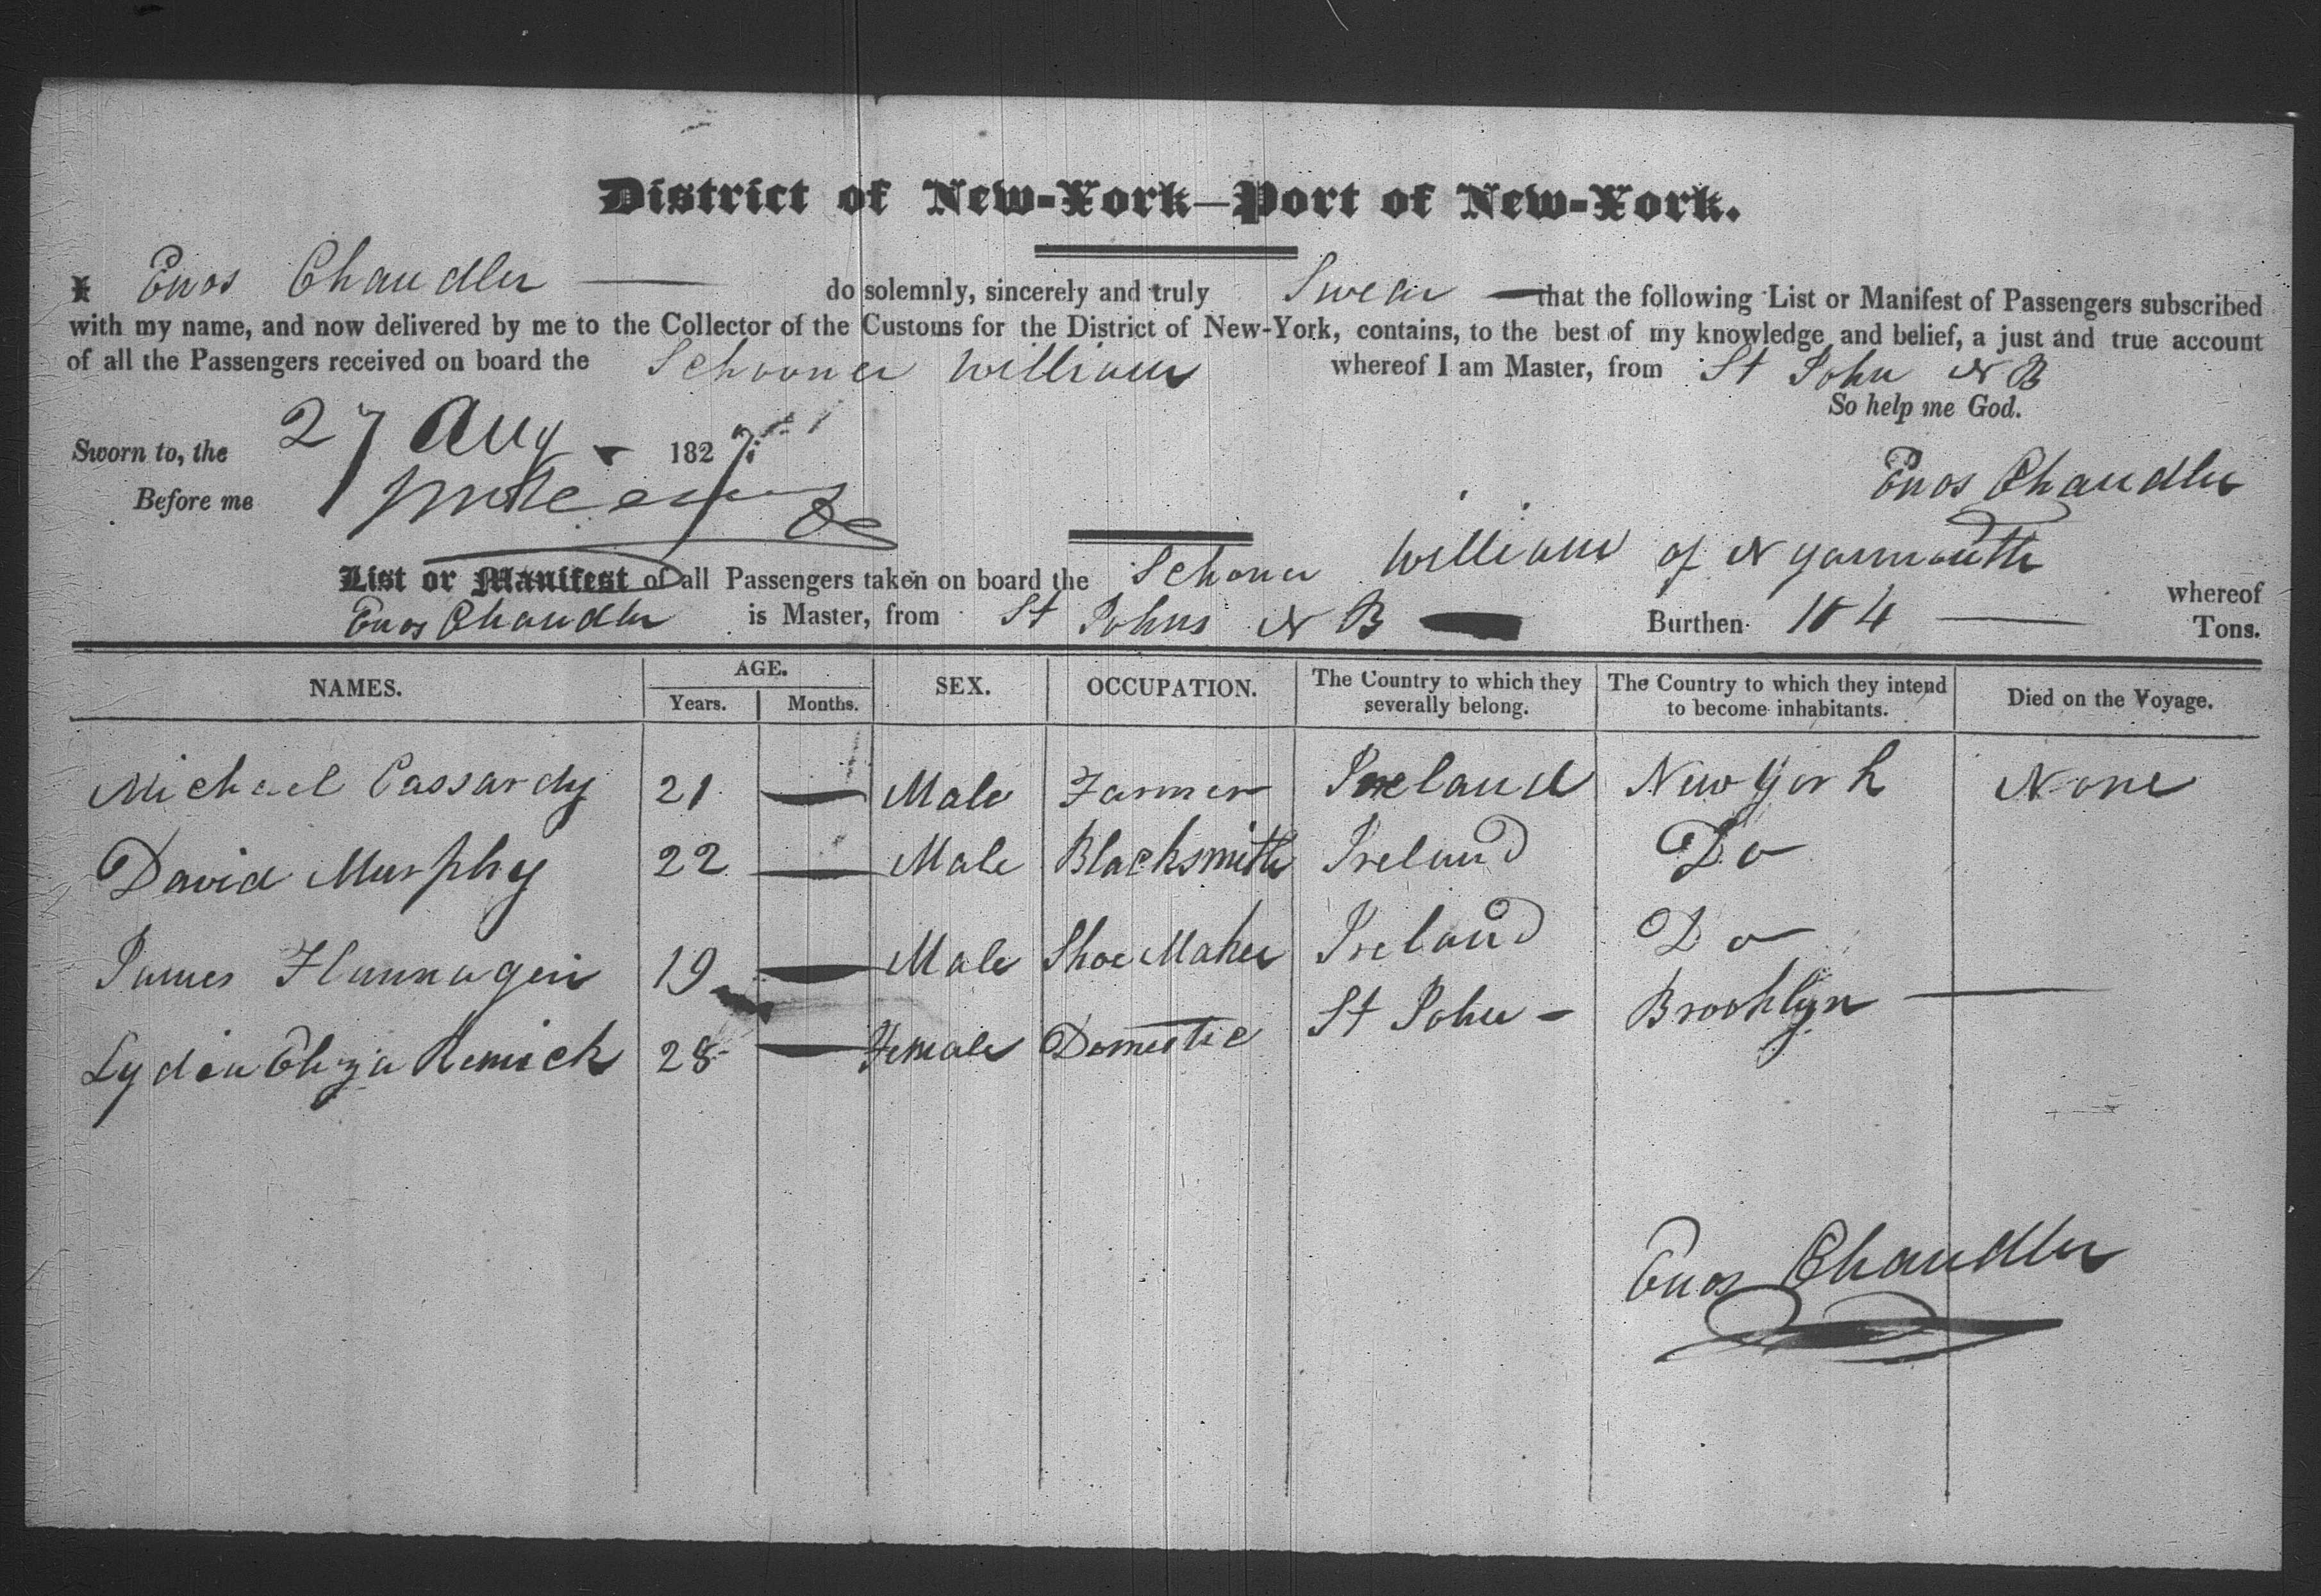 District of New-York—Port of New-York.
I Enos Chandler — do solemnly, sincerely and truly Swear — that the following List or Manifest of Passengers subscribed
with my name, and now delivered by me to the Collector of the Customs for the District of New-York, contains, to the best of my knowledge and belief, a just and true account
of all the Passengers received on board the Schooner William whereof I am Master, from St John N B
So help me God.
Sworn to, the 27 Aug - 1827
Before me
Enos Chandler
List or Manifest of all Passengers taken on board the Schoner William of N Yarmouth whereof
Enos Chandler is Master, from St Johns N B Burthen 104 — Tons.
NAMES. AGE. Years. Months. SEX. OCCUPATION. The Country to which they severally belong. The Country to which they intend to become inhabitants. Died on the Voyage.
Michael Cassardy 21 — Male Farmer Ireland New York None
David Murphy 22 — Male Blacksmith Ireland Do
James Flannagen 19 — Male Shoe Maker Ireland Do
Lydia Eliza Remick 28 — Female Domestic St John - Brooklyn —
Enos Chandler